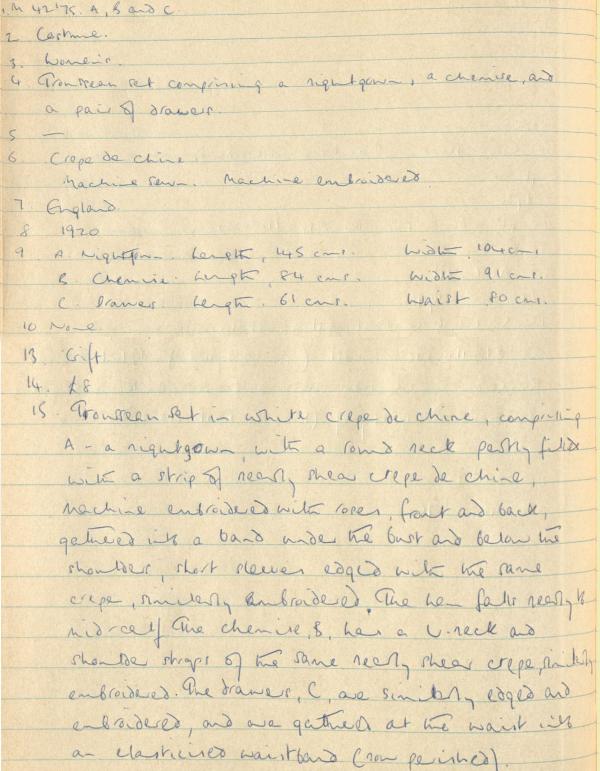 1. M 42'75. A, B and C.
2 Costume.
3. Women's.
4 Trousseau set comprising a nightgown, a chemise, and
a pair of drawers.
5 —
6 Crepe de chine
Machine sewn. Machine embroidered.
7 England
8 1920
9 A. Nightgown. Length, 145 cms. Width, 104 cms,
B. Chemise. Length, 84 cms. Width 91 cms.
C. Drawers. Length. 61 cms. Waist 80 cms.
10 None
13. Gift
14. £8
15. Trousseau set in white crepe de chine, comprising
A - a nightgown, with a round neck partly filled
with a strip of nearly shear crepe de chine,
machine embroidered with roses, front and back,
gathered into a band under the bust and below the
shoulders, short sleeves edged with the same
crepe, similarly embroidered. The hem falls nearly to
mid-calf. The chemise, B, has a U-neck and
shoulder straps of the same nearly shear crepe, similarly
embroidered. The drawers, C, are similarly edged and
embroidered, and are gathered at the waist into
an elasticised waistband (now perished).